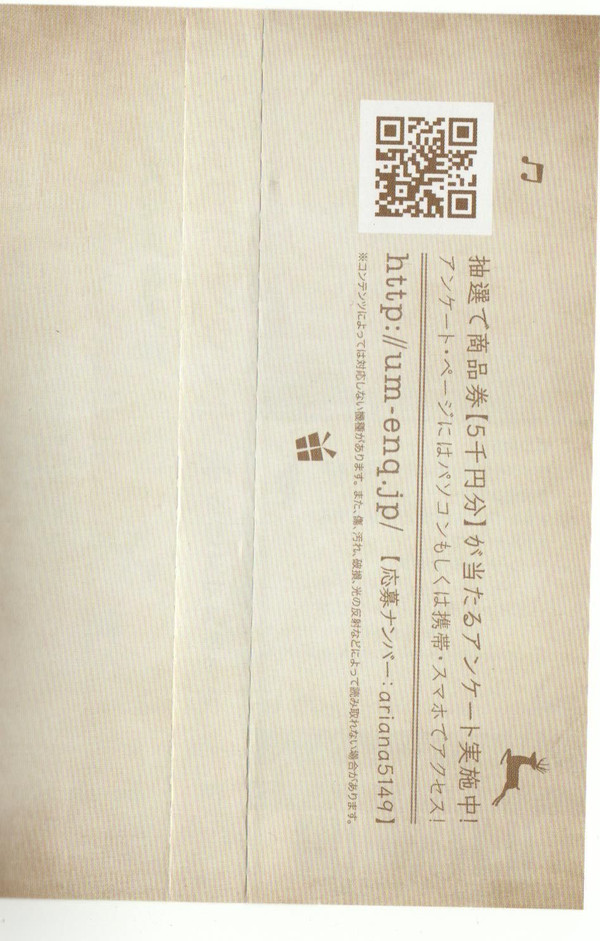 抽選で商品券【5千円分】が当たるアンケート実施中!
アンケート・ページにはパソコンもしくは携帯・スマホでアクセス!
http://um-enq.jp/【応募ナンバー:ariana5149】
※コンテンツによっては対応しない機種があります。また、傷、汚れ、破損、光の反射などによって読み取れない場合があります。